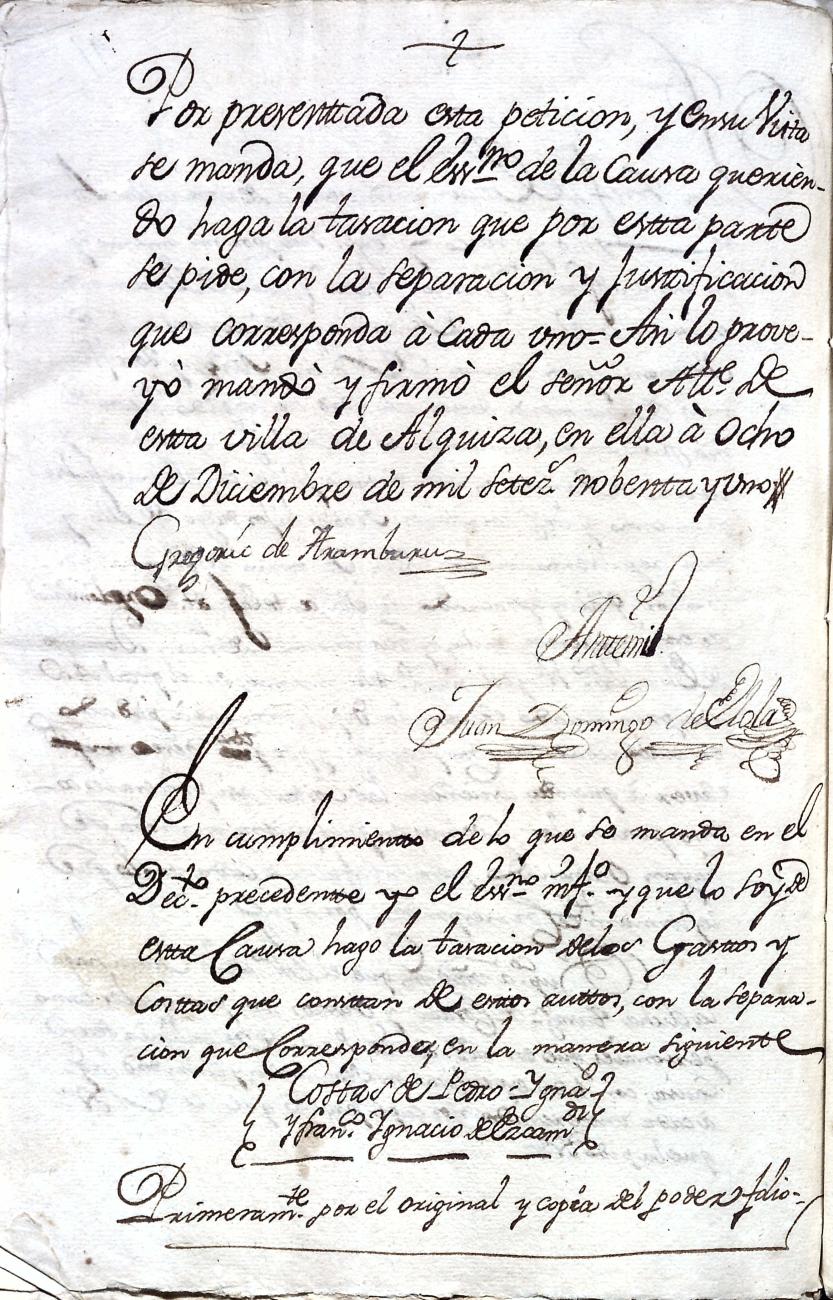 Por presenttada esta peticion, y en su Vista
se manda, que el Ess.no de la Causa querien-
do haga la tasacion que por estta parte
se pide, con la separacion y Justtificacion
que corresponda à cada vno= Asi lo prove-
yò mandò y firmò el señor All.e de
estta villa de Alquiza, en ella à Ocho
de Diciembre de mil setez.s nobentta y vno
Gregorio de Aramburu
Anttemi
Juan Domingo de Elola
En cumplimientto de lo que se manda en el
Dec.to precedentte yo el Ess.no ynf.o y que lo soy de
estta Causa hago la tasacion de los Gasttos y
Costtas que consttan de esttos auttos, con la separa-
cion que Corresponde, en la manera siguientte
Costas de Pedro Ygna.o
y fran.co Ygnacio de Lizcam.di
Primeram.te por el original y copia del poder